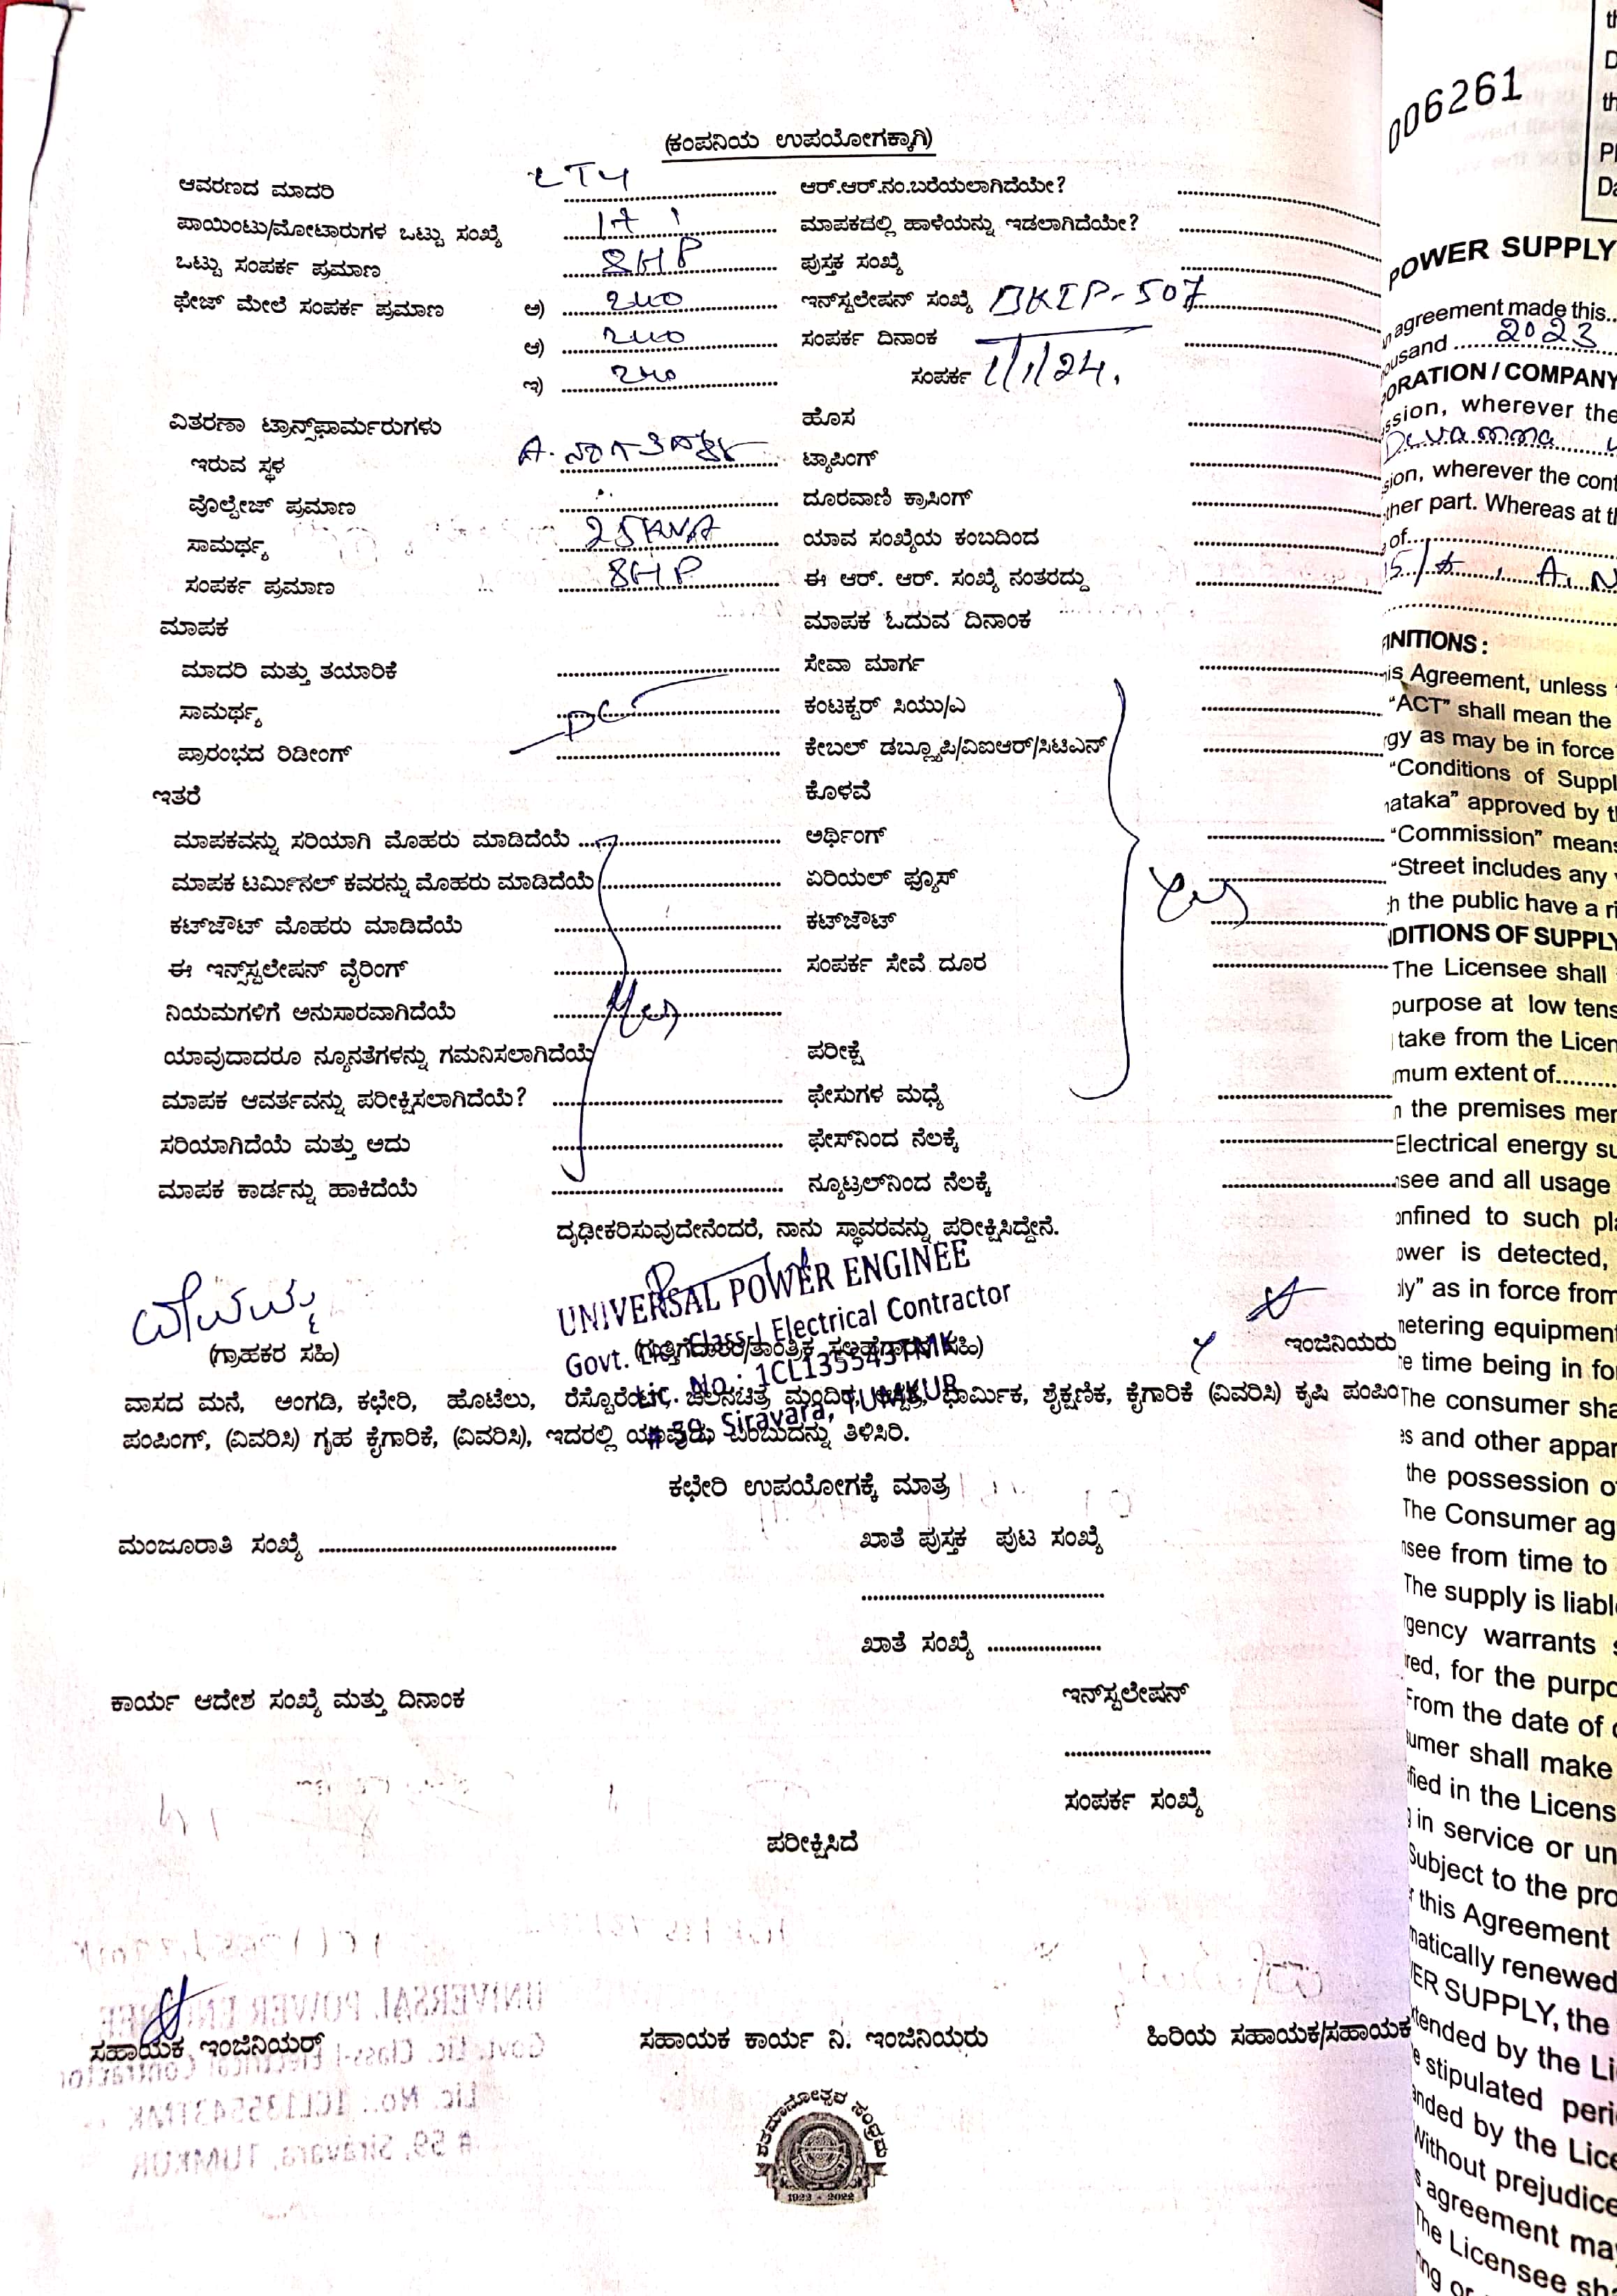 (ಕಂಪನಿಯ ಉಪಯೋಗಕ್ಕಾಗಿ)
ಆವರಣದ ಮಾದರಿ LT4 ಆರ್.ಆರ್.ನಂ.ಬರೆಯಲಾಗಿದೆಯೇ?
ಪಾಯಿಂಟು/ಮೋಟಾರುಗಳ ಒಟ್ಟು ಸಂಖ್ಯೆ 1+1 ಮಾಪಕದಲ್ಲಿ ಹಾಳೆಯನ್ನು ಇಡಲಾಗಿದೆಯೇ?
ಒಟ್ಟು ಸಂಪರ್ಕ ಪ್ರಮಾಣ 8HP ಪುಸ್ತಕ ಸಂಖ್ಯೆ
ಫೇಜ್ ಮೇಲೆ ಸಂಪರ್ಕ ಪ್ರಮಾಣ ಅ) 240 ಇನ್‌ಸ್ಟಲೇಷನ್ ಸಂಖ್ಯೆ BKIP-507
ಆ) 240 ಸಂಪರ್ಕ ದಿನಾಂಕ
ಇ) 240 ಸಂಪರ್ಕ 1/1/24.
ವಿತರಣಾ ಟ್ರಾನ್ಸ್‌ಫಾರ್ಮರುಗಳು ಹೊಸ
ಇರುವ ಸ್ಥಳ A. ಟ್ಯಾಪಿಂಗ್
ವೊಲ್ಟೇಜ್ ಪ್ರಮಾಣ ದೂರವಾಣಿ ಕ್ರಾಸಿಂಗ್
ಸಾಮರ್ಥ್ಯ 25KVA ಯಾವ ಸಂಖ್ಯೆಯ ಕಂಬದಿಂದ
ಸಂಪರ್ಕ ಪ್ರಮಾಣ 8HP ಈ ಆರ್. ಆರ್. ಸಂಖ್ಯೆ ನಂತರದ್ದು
ಮಾಪಕ ಮಾಪಕ ಓದುವ ದಿನಾಂಕ
ಮಾದರಿ ಮತ್ತು ತಯಾರಿಕೆ ಸೇವಾ ಮಾರ್ಗ
ಸಾಮರ್ಥ್ಯ DC ಕಂಟಕ್ಟರ್ ಸಿಯು/ಎ
ಪ್ರಾರಂಭದ ರಿಡೀಂಗ್ ಕೇಬಲ್ ಡಬ್ಲ್ಯೂಪಿ/ವಿಐಆರ್/ಸಿಟಿಎನ್
ಇತರೆ ಕೊಳವೆ
ಮಾಪಕವನ್ನು ಸರಿಯಾಗಿ ಮೊಹರು ಮಾಡಿದೆಯೆ ಅರ್ಥಿಂಗ್
ಮಾಪಕ ಟರ್ಮಿನಲ್ ಕವರನ್ನು ಮೊಹರು ಮಾಡಿದೆಯೆ ಏರಿಯಲ್ ಫ್ಯೂಸ್ yes
ಕಟ್‌ಜೌಟ್ ಮೊಹರು ಮಾಡಿದೆಯೆ ಕಟ್‌ಜೌಟ್
ಈ ಇನ್ಸ್‌ಸ್ಟಲೇಷನ್ ವೈರಿಂಗ್ ಸಂಪರ್ಕ ಸೇವೆ ದೂರ
ನಿಯಮಗಳಿಗೆ ಅನುಸಾರವಾಗಿದೆಯೆ Yes
ಯಾವುದಾದರೂ ನ್ಯೂನತೆಗಳನ್ನು ಗಮನಿಸಲಾಗಿದೆಯೆ ಪರೀಕ್ಷೆ
ಮಾಪಕ ಆವರ್ತವನ್ನು ಪರೀಕ್ಷಿಸಲಾಗಿದೆಯೆ? ಫೇಸುಗಳ ಮಧ್ಯೆ
ಸರಿಯಾಗಿದೆಯೆ ಮತ್ತು ಅದು ಫೇಸ್‌ನಿಂದ ನೆಲಕ್ಕೆ
ಮಾಪಕ ಕಾರ್ಡನ್ನು ಹಾಕಿದೆಯೆ ನ್ಯೂಟ್ರಲ್‌ನಿಂದ ನೆಲಕ್ಕೆ
ದೃಢೀಕರಿಸುವುದೇನೆಂದರೆ, ನಾನು ಸ್ಥಾವರವನ್ನು ಪರೀಕ್ಷಿಸಿದ್ದೇನೆ.
UNIVERSAL POWER ENGINEE
Govt. Lic. Class-I Electrical Contractor
Lic. No.: 1CL135543TMK
# 59, Siravara, TUMKUR
(ಗ್ರಾಹಕರ ಸಹಿ) (ಗುತ್ತಿಗೆದಾರರ/ತಾಂತ್ರಿಕ ಸಲಹೆಗಾರರ ಸಹಿ) ಇಂಜಿನಿಯರು
ವಾಸದ ಮನೆ, ಅಂಗಡಿ, ಕಛೇರಿ, ಹೊಟೆಲು, ರೆಸ್ಟೊರೆಂಟ್, ಚಲನಚಿತ್ರ ಮಂದಿರ, ಆಸ್ಪತ್ರೆ, ಧಾರ್ಮಿಕ, ಶೈಕ್ಷಣಿಕ, ಕೈಗಾರಿಕೆ (ವಿವರಿಸಿ) ಕೃಷಿ ಪಂಪಿಂ
ಪಂಪಿಂಗ್, (ವಿವರಿಸಿ) ಗೃಹ ಕೈಗಾರಿಕೆ, (ವಿವರಿಸಿ), ಇದರಲ್ಲಿ ಯಾವುದು ಎಂಬುದನ್ನು ತಿಳಿಸಿರಿ.
ಕಛೇರಿ ಉಪಯೋಗಕ್ಕೆ ಮಾತ್ರ
ಮಂಜೂರಾತಿ ಸಂಖ್ಯೆ ಖಾತೆ ಪುಸ್ತಕ ಪುಟ ಸಂಖ್ಯೆ
ಖಾತೆ ಸಂಖ್ಯೆ
ಕಾರ್ಯ ಆದೇಶ ಸಂಖ್ಯೆ ಮತ್ತು ದಿನಾಂಕ ಇನ್‌ಸ್ಟಲೇಷನ್
ಸಂಪರ್ಕ ಸಂಖ್ಯೆ
ಪರೀಕ್ಷಿಸಿದೆ
ಸಹಾಯಕ ಇಂಜಿನಿಯರ್ ಸಹಾಯಕ ಕಾರ್ಯ ನಿ. ಇಂಜಿನಿಯರು ಹಿರಿಯ ಸಹಾಯಕ/ಸಹಾಯಕ
ಶತಮಾನೋತ್ಸವ ಸಂಭ್ರಮ
1922 - 2022
006261
POWER SUPPLY
agreement made this
ousand 2023
ORATION / COMPANY
ssion, wherever the
Devamma
sion, wherever the cont
ther part. Whereas at th
of
15/ , A. N
INITIONS :
is Agreement, unless
"ACT" shall mean the
gy as may be in force
"Conditions of Suppl
nataka" approved by th
"Commission" means
"Street includes any
h the public have a ri
DITIONS OF SUPPLY
The Licensee shall
purpose at low tens
take from the Licen
mum extent of
n the premises mer
Electrical energy su
see and all usage
onfined to such pla
ower is detected,
ly" as in force from
metering equipment
e time being in fo
The consumer sha
es and other appar
the possession of
The Consumer ag
nsee from time to
The supply is liabl
rgency warrants s
red, for the purpo
From the date of c
sumer shall make
ified in the Licens
in service or un
Subject to the pro
this Agreement
matically renewed
ER SUPPLY, the
xtended by the Li
e stipulated peri
anded by the Lice
Without prejudice
s agreement may
The Licensee sha